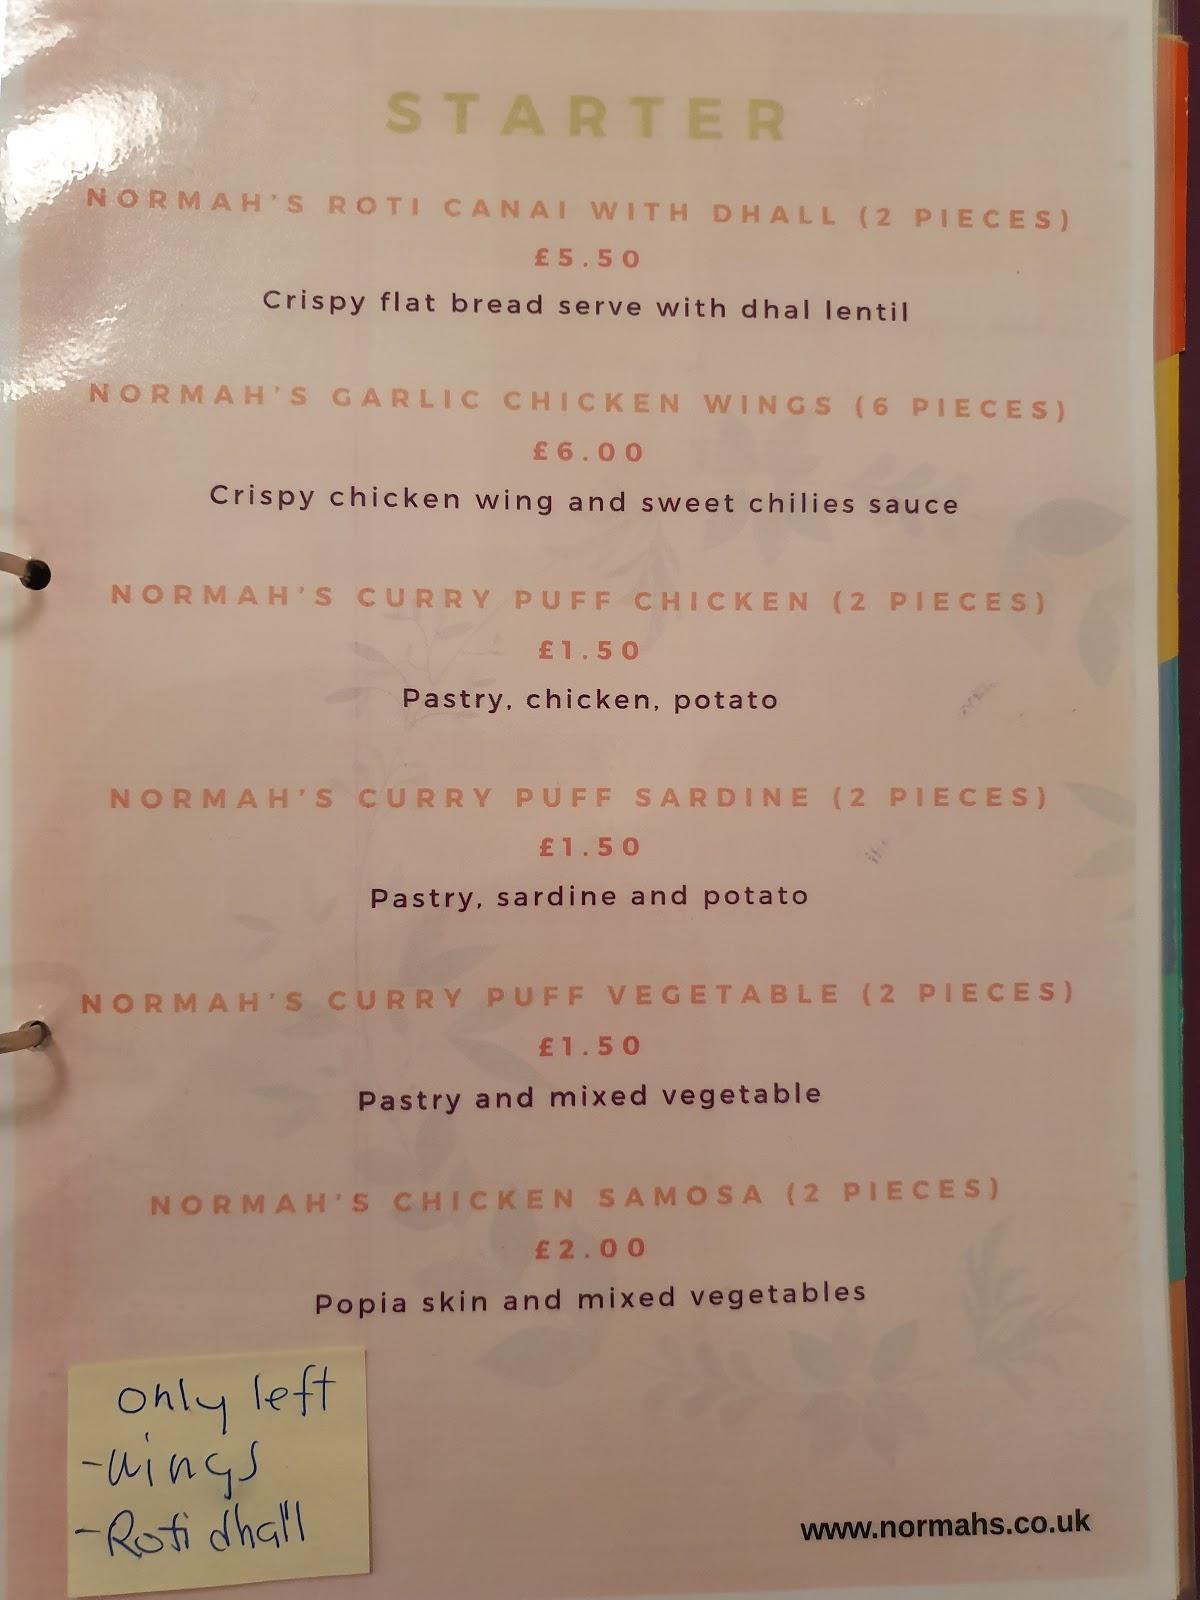 STARTER
NORMAH'S ROTI CANAI WITH DHALL (2 PIECES)
£5.50
Crispy flat bread serve with dhal lentil
NORMAH'S GARLIC CHICKEN WINGS (6 PIECES)
£6.00
Crispy chicken wing and sweet chilies sauce
NORMAH'S CURRY PUFF CHICKEN (2 PIECES)
£1.50
Pastry, chicken, potato
NORMAH'S CURRY PUFF SARDINE (2 PIECES)
£1.50
Pastry, sardine and potato
NORMAH'S CURRY PUFF VEGETABLE (2 PIECES)
£1.50
Pastry and mixed vegetable
NORMAH'S CHICKEN SAMOSA (2 PIECES)
£2.00
Popia skin and mixed vegetables
only left
-wings
-Roti dhall
www.normahs.co.uk